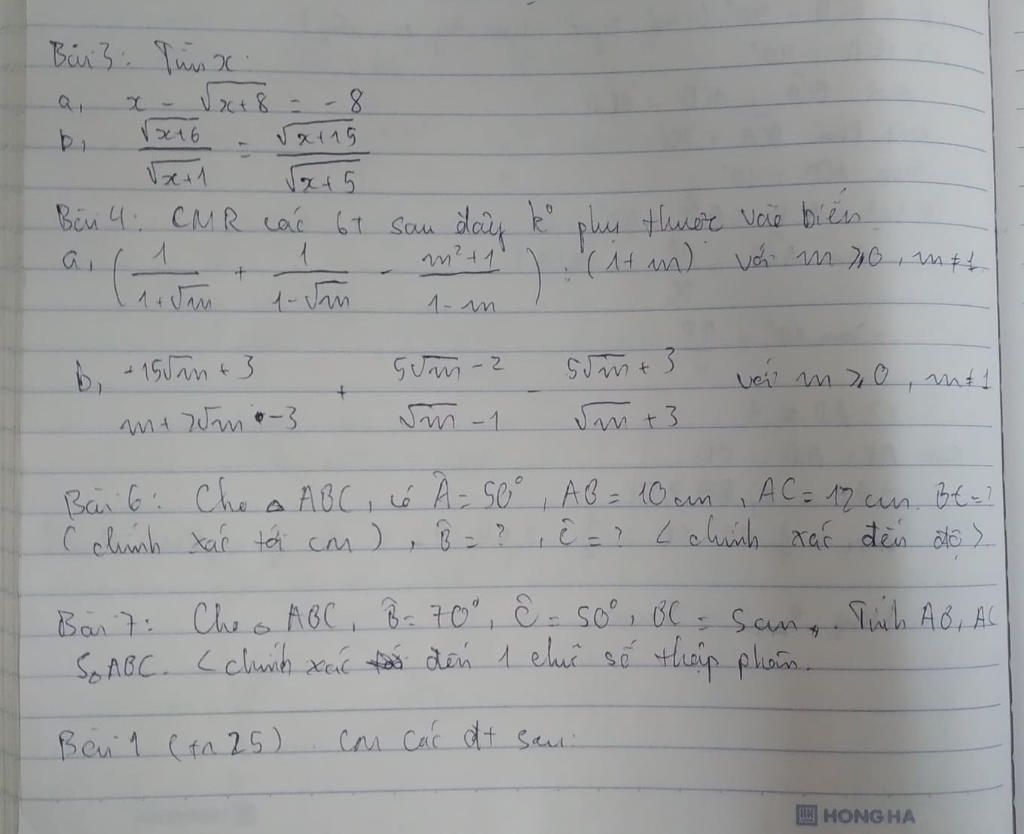 Bài 3: Tìm x:
a, x - √(x+8) = -8
b, √(x+6)/√(x+1) = √(x+15)/√(x+5)
Bài 4: CMR các bt sau đây k° phụ thuộc vào biến
a, (1/(1+√m) + 1/(1-√m) - (m²+1)/(1-m)) : (1+m) với m ≥ 0, m ≠ 1
b, (-15√m + 3)/(m + 2√m - 3) + (5√m - 2)/(√m - 1) - (5√m + 3)/(√m + 3) với m ≥ 0, m ≠ 1
Bài 6: Cho △ ABC, có Â = 50°, AB = 10 cm, AC = 12 cm. BC = ?
(chính xác tới cm), B̂ = ?, Ĉ = ? < chính xác đến độ >
Bài 7: Cho △ ABC, B̂ = 70°, Ĉ = 50°, BC = 5cm. Tính AB, AC
S△ABC. < chính xác đến 1 chữ số thập phân.
Bài 1 (tr 25). Cm các đt sau:
HONG HA